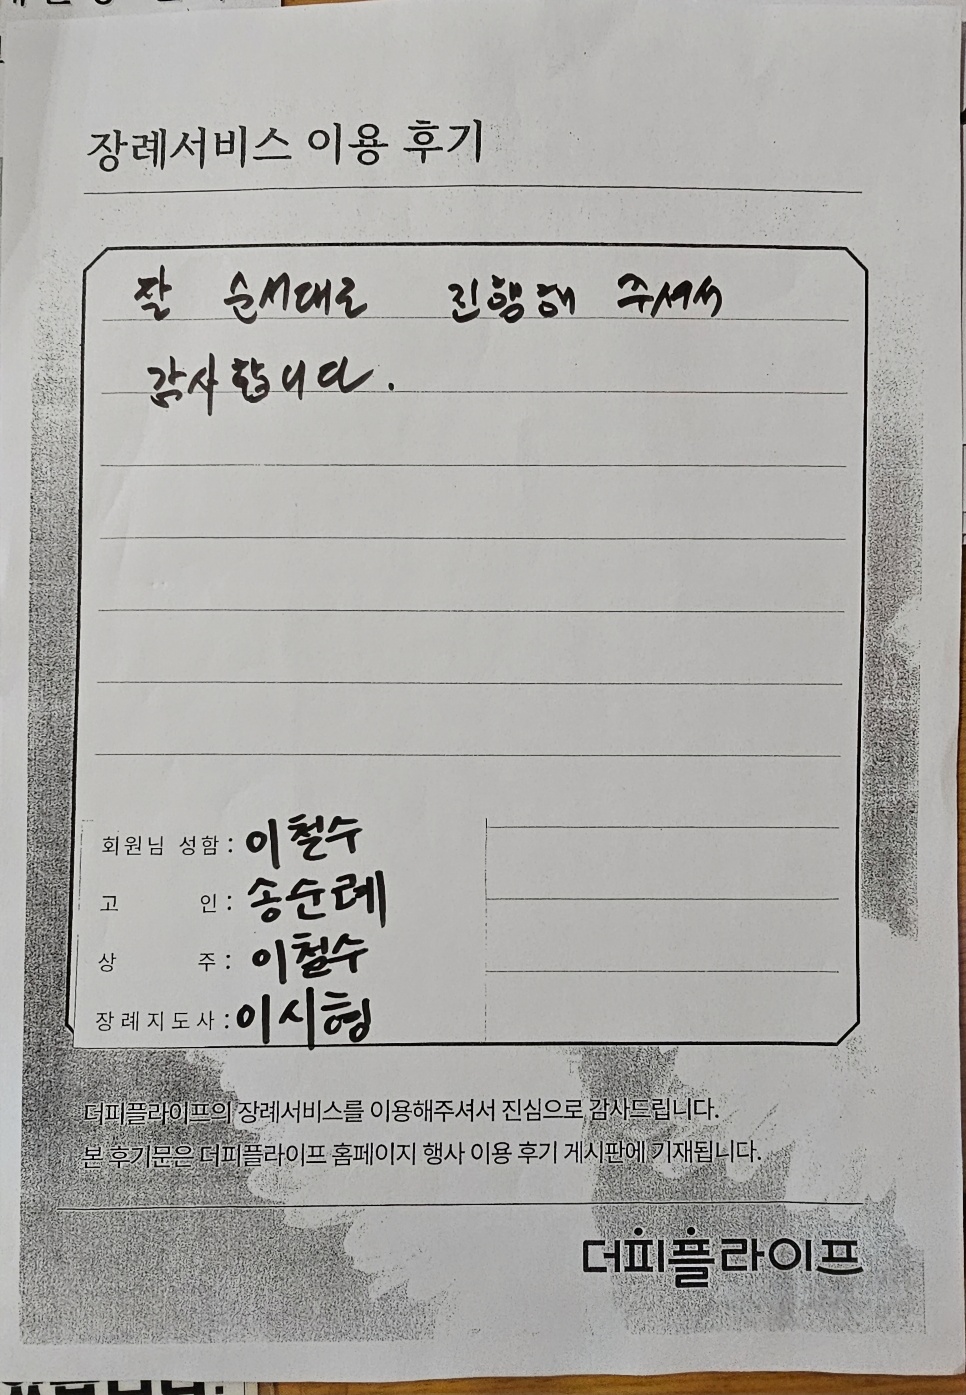 장례서비스 이용 후기
잘 순서대로 진행해 주셔서
감사합니다.
회원님 성함 : 이철수
고 인 : 송순례
상 주 : 이철수
장례지도사 : 이시형
더피플라이프의 장례서비스를 이용해주셔서 진심으로 감사드립니다.
본 후기문은 더피플라이프 홈페이지 행사 이용 후기 게시판에 기재됩니다.
더피플라이프